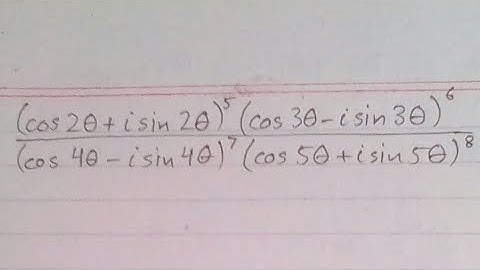 (cos 2θ + i sin 2θ)⁵ (cos 3θ - i sin 3θ)⁶
(cos 4θ - i sin 4θ)⁷ (cos 5θ + i sin 5θ)⁸